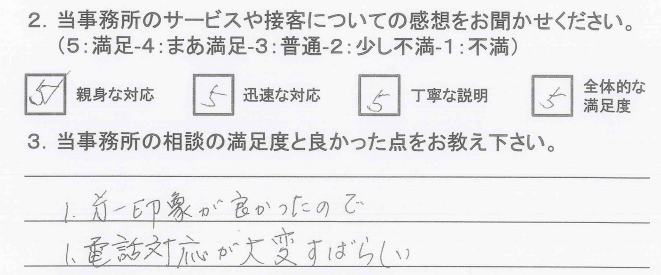 2. 当事務所のサービスや接客についての感想をお聞かせください。
(5:満足-4:まあ満足-3:普通-2:少し不満-1:不満)
5 親身な対応 5 迅速な対応 5 丁寧な説明 5 全体的な満足度
3. 当事務所の相談の満足度と良かった点をお教え下さい。
1. 㐧一印象が良かったので
1. 電話対応が大変すばらしい